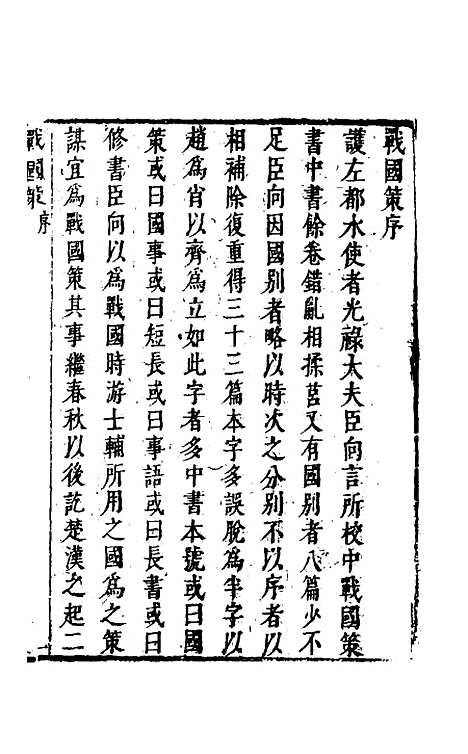 戰國策序
護左都水使者光祿大夫臣向言所校中戰國策
書中書餘卷錯亂相揉莒又有國別者八篇少不
足臣向因國別者略以時次之分別不以序者以
相補除復重得三十三篇本字多誤脫為半字以
趙為肖以齊為立如此字者多中書本號或曰國
策或曰國事或曰短長或曰事語或曰長書或曰
修書臣向以為戰國時游士輔所用之國為之策
謀宜為戰國策其事繼春秋以後訖楚漢之起二
戰國策 序 一